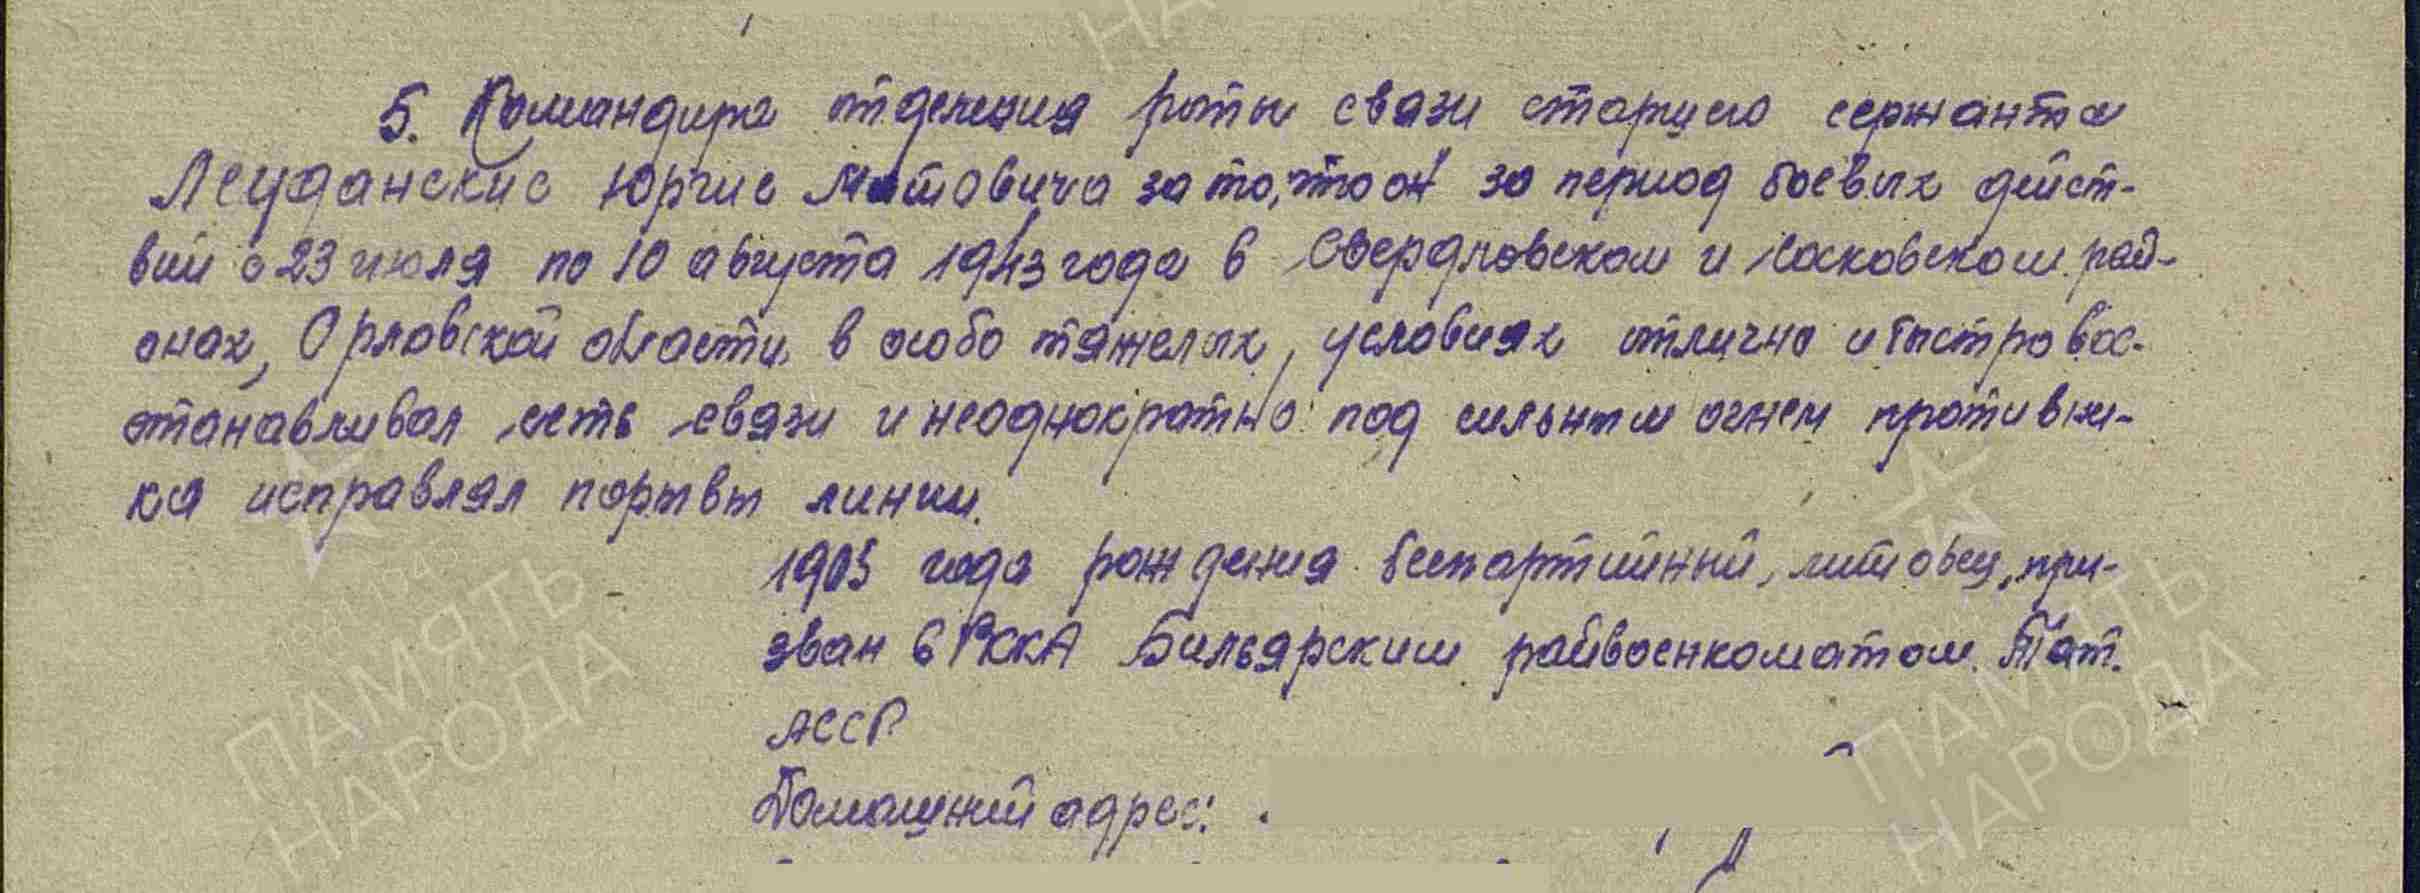 5. Командира отделения роты связи старшего сержанта
Леуданскис Юргис Матовича за то, что он за период боевых дейст-
вий с 23 июля по 10 августа 1943 года в Свердловском и Сосковском рай-
онах, Орловской области в особо тяжелых, условиях отлично и быстро вос-
станавливал сеть связи и неоднократно под сильным огнем противни-
ка исправлял порывы линии.
1903 года рождения беспартийный, литовец, при-
зван в РККА Бильярским райвоенкоматом Тат.
АССР
Домашний адрес:
ПАМЯТЬ
НАРОДА
ПАМЯТЬ
НАРОДА